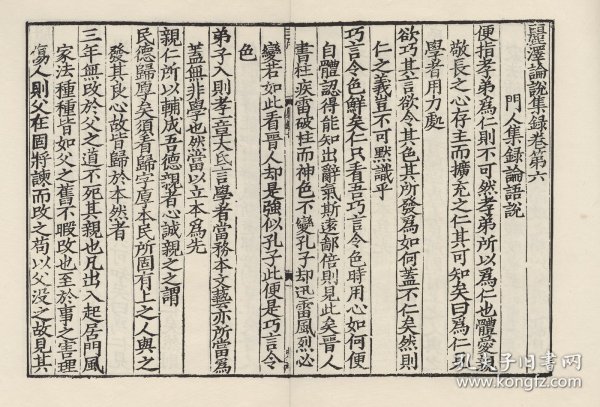 麗澤論說集録卷第六
門人集録論語說
便指孝弟爲仁則不可然孝弟所以爲仁也體愛親
敬長之心存主而擴充之仁其可知矣曰爲仁云
學者用力處
欲巧其言欲令其色其所發爲如何蓋不仁矣然則
仁之義豈不可默識乎
巧言令色鮮矣仁只看吾巧言令色時用心如何便
自體認得能知出辭氣斯遠鄙倍則見此矣晉人
書柱疾雷破柱而神色不變孔子却迅雷風烈必
變若如此看晉人却是強似孔子此便是巧言令
色
弟子入則孝章大氐言學者當務本文藝亦所當爲
蓋無非學也然當以立本爲先
親仁所以輔成吾德親者心誠親之之謂
民德歸厚矣須看歸字厚本民所固有上之人與之
發其良心故皆歸於本然者
三年無改於父之道不死其親也凡出入起居門風
家法種種皆如父之舊不暇改也至於事之害理
傷人則父在固將諫而改之苟以父没之故見其
孔夫子旧书网
www.kongfz.com